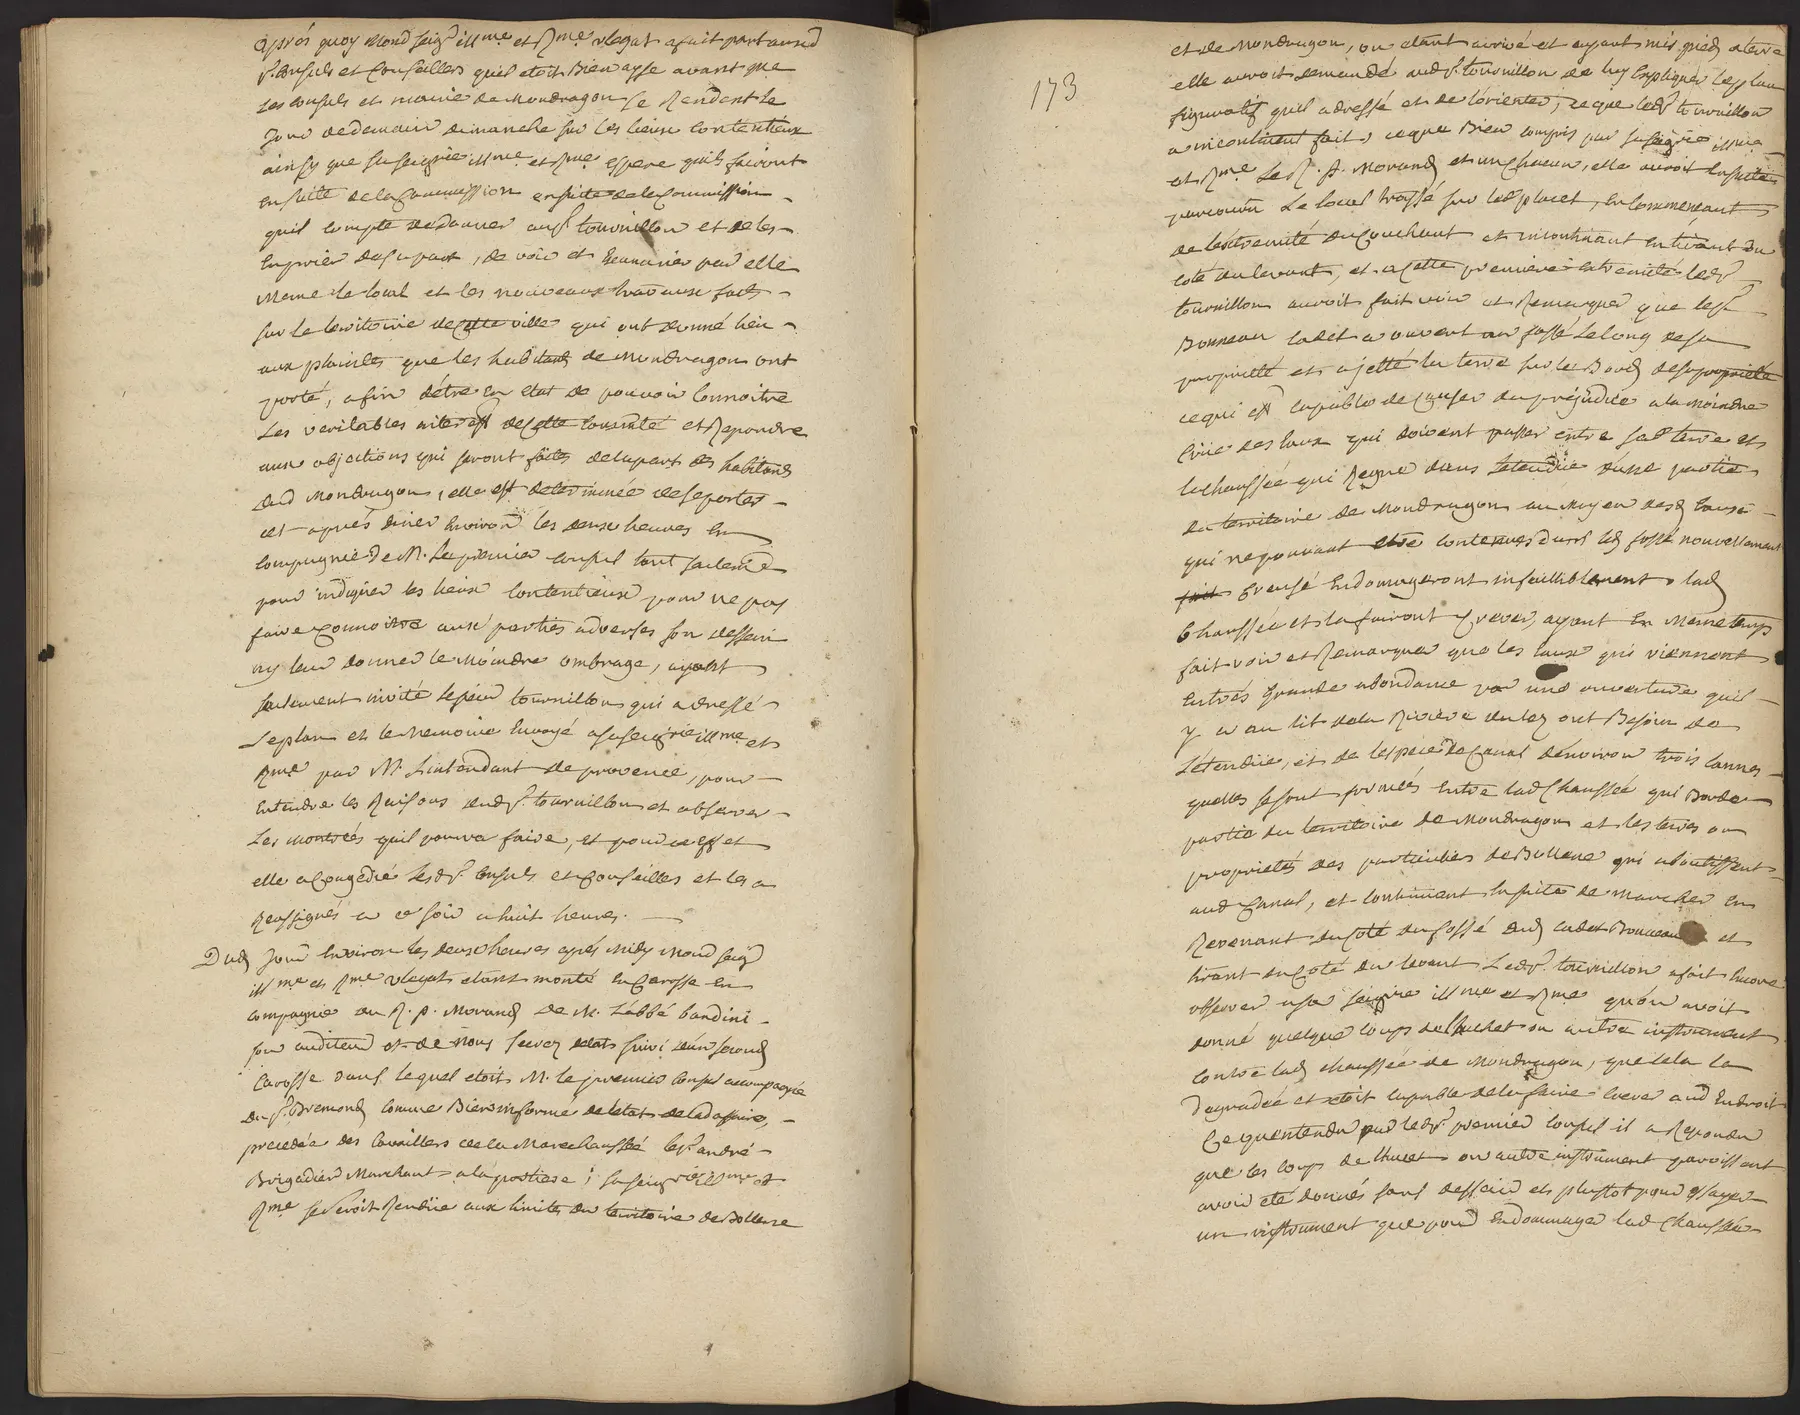 Après quoy Mond Seigr illme et Rme vlegat a fait part auxd
Srs Consuls et Conseillers quil etoit Bien ayse avant que
Les consuls et mairie de Mondragon se Rendent le
Jour de demain dimanche sur les lieux contentieux
ainsy que sa seigrie illme et Rme espere quils fairont
ensuite de la Commission ensuite de la Commission
quil compte de donner aud Sr tourvillon et de les
en prier de sa part, de voir et Examiner par elle
Meme le local et les nouveaux travaux faits
sur le territoire de cette ville qui ont donné lieu
aux plaintes que les habitants de Mondragon ont
porté, afin d'être en etat de pouvoir Connoitre
Les veritables interest de cette Comnté et Repondre
aux objections qui seront faites de la part des habitants
dud Mondragon, elle est determinée de se porter
cet aprés diner Environ les deux heures En
Compagnie de M. Le premier Consul tant seulemt
pour indiquer les lieux Contentieux pour ne pas
faire connoitre aux parties adverses son dessein
ny leur donner le Moindre ombrage, ayant
seulement invité le sieur tourvillon qui a dressé
Le plan et le Memoire Envoyé a sa seigrie illme et
Rme par M. L'intendant de provence, pour
Entendre les Raisons dud Sr. tourvillon et observer
Les montrées quil pourra faire, et pour ce effet
elle a Congedié lesd Srs Consuls et Conseilles et les a
Reassignés a ce soir a huit heures.
Dud Jour Environ les deux heures après Midy Mond seigr
illme et Rme vlegat etant monté En Carosse En
Compagnie du R. P. Morand de M. L'abbé bandini
son auditeur et de nous Secret. d'etat suivi d'un second
Carosse dans lequel etoit M. le premier Consul accompagné
du Sr. Bremond comme Bien informé de l'etat de lad affaire,
precedée des Cavaillers de la Marechaussée le Sr. andré
Brigadier Marchant a la portiere; sa seigrie illme et
Rme se seroit Rendüe aux limites du territoire de Bollene
173
et de Mondragon, ou etant arrivé et ayant mis pied a terre
elle auroit demandé aud Sr. tourvillon de luy Expliquer le plan
figuratif quil a dressé et de l'orienter, ce que led Sr tourvillon
a incontinent fait, ce que Bien compris par sa seigrie illme
et Rme Le R. P. Morand et un chacun, elle auroit Ensuite
parcouru Le local trassé sur led placet, En Commencant
de l'extremité du Couchant et incontinant En tirant du
coté du levant, et a Cette premiere extremité led Sr
tourvillon auroit fait voir et Remarquer que le Sr
Bonneau Cadet a ouvert un fossé Le long de sa
proprieté et a jetté la terre sur le Bord de sa proprieté
ce qui est capable de Causer du préjudice a la moindre
Crüe des Eaux qui doivent passer entre sad terre et
la chaussée qui Regne dans l'etendüe d'une partie
du territoire de Mondragon au Moyen desd Eaux
qui ne pouvant etre Contenues dans led fossé nouvellement
fait Creusé Endomageront infailliblement lad
Chaussée et la fairont Crever, ayant En Meme temps
fait voir et Remarquer que les Eaux qui viennent
En tres Grande abondance par une ouverture quil
y a au lit de la Riviere du lez ont Besoin de
L'étendüe, et de l'espece de Canal d'environ trois Cannes
quelles se sont formées Entre lad Chaussée qui Borde
partie du territoire de Mondragon et les terres ou
proprietés des particuliers de Bollene qui aboutissent
aud Canal, et Continuant Ensuite de Marcher En
Revenant du coté du fossé dud cadet Bonneau et
tirant du Coté du levant Led Sr. tourvillon a fait Encore
observer a sa Seigrie illme et Rme qu'on avoit
donné quelque coups de Luchet ou autre instrument
Contre lad chaussée de Mondragon, que cela la
Degradée et etoit capable de la faire Crever aud Endroit
Ce qu'entendu par led Sr premier Consul il a Repondu
que les coups de Luchet ou autre instrument paroissent
avoir eté donnés sans dessein et plustot pour essayer
un instrument que pour Endommager lad Chaussée